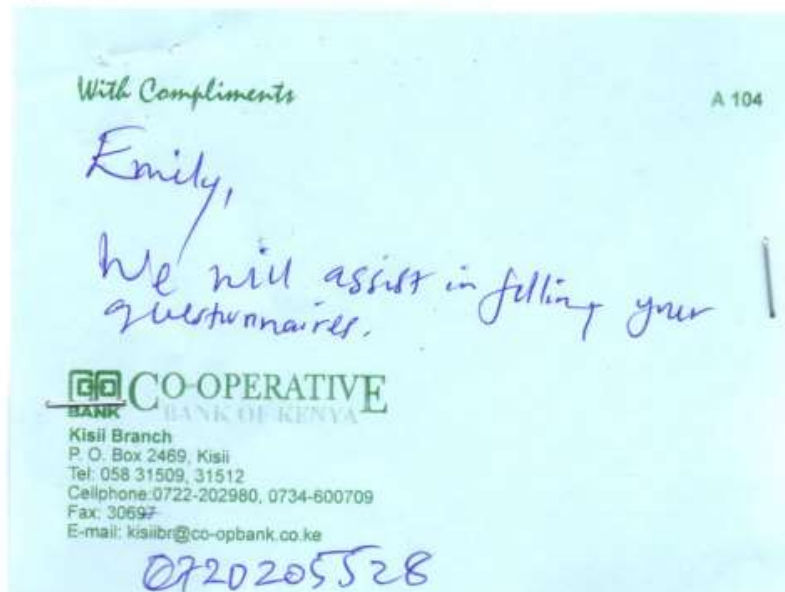 With Compliments
A 104
Emily,
We will assist in filling your
questionnaires.
CO-OPERATIVE
BANK BANK OF KENYA
Kisii Branch
P. O. Box 2469, Kisii
Tel: 058 31509, 31512
Cellphone:0722-202980, 0734-600709
Fax: 30697
E-mail: kisiibr@co-opbank.co.ke
0720205528